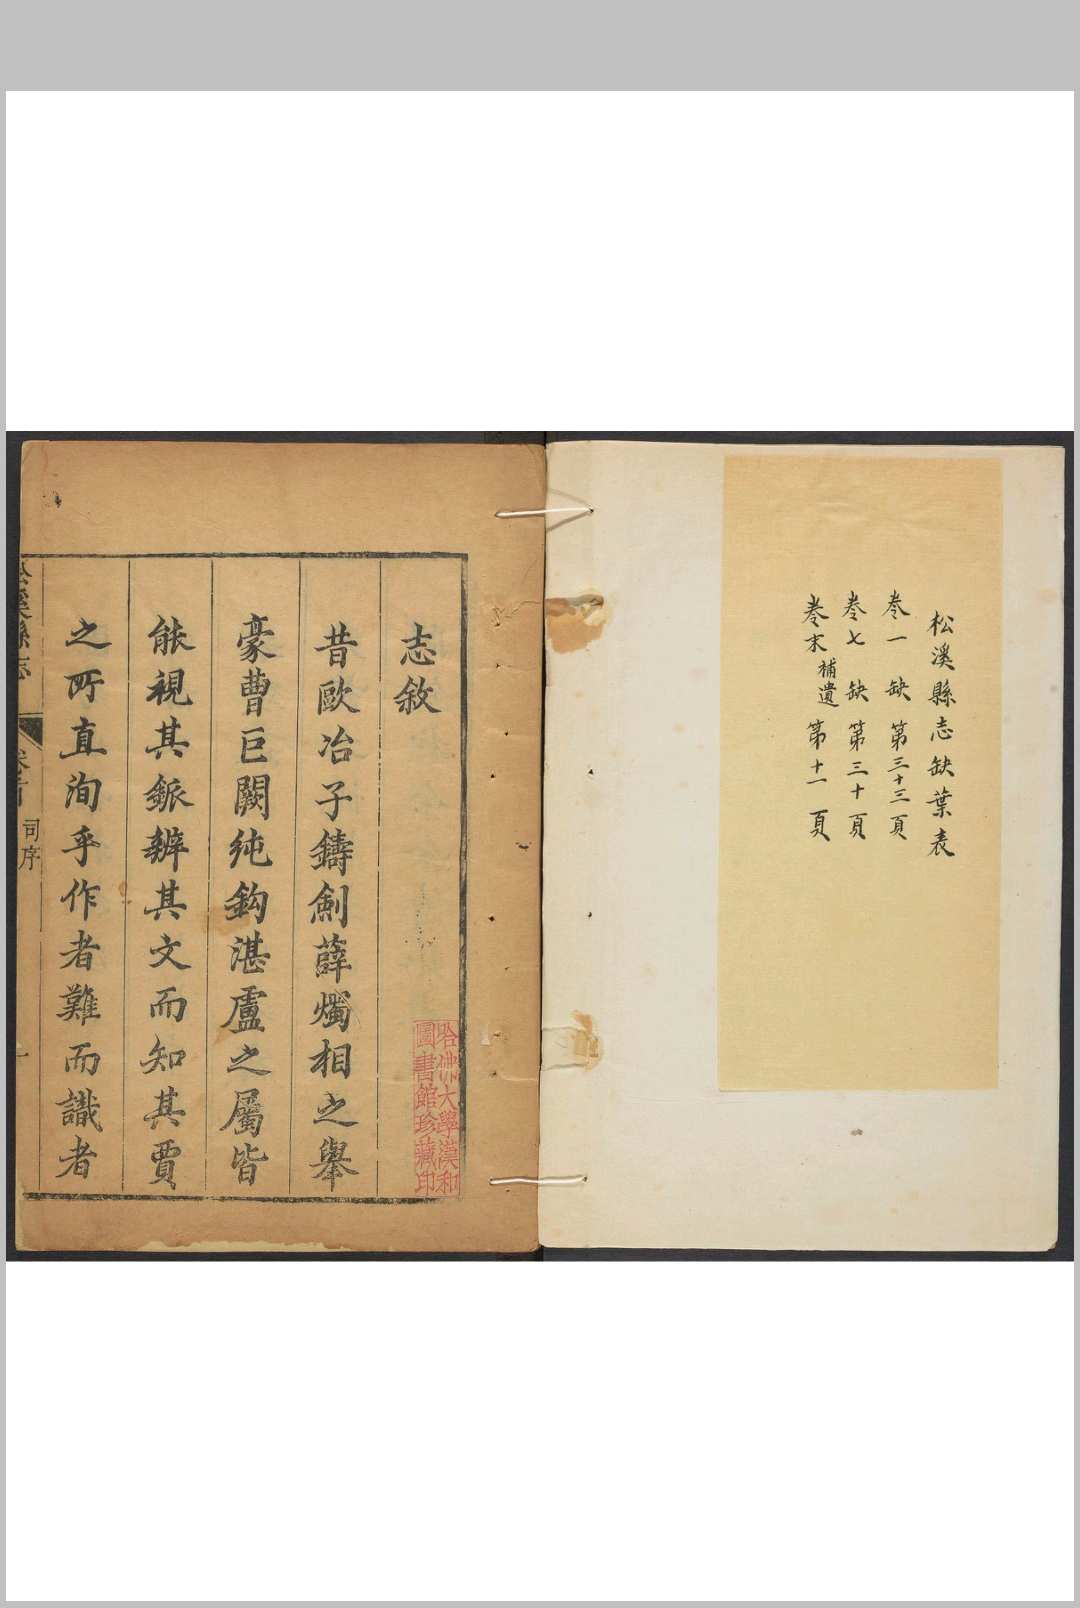 松溪縣志缺葉表
卷一 缺 第三十三頁
卷七 缺 第三十頁
卷末 補遺 第十一頁
志敘
昔歐冶子鑄劍薛燭相之舉
豪曹巨闕純鈎湛盧之屬皆
能視其鋠辨其文而知其賈
之所直洵乎作者難而識者
松溪縣志 卷首 司序 一
哈佛大學漢和
圖書館珍藏印